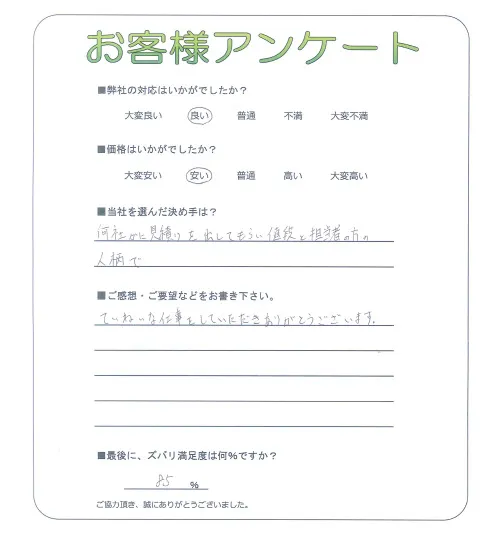 お客様アンケート
■弊社の対応はいかがでしたか？
大変良い 良い 普通 不満 大変不満
■価格はいかがでしたか？
大変安い 安い 普通 高い 大変高い
■当社を選んだ決め手は？
何社かに見積りを出してもらい値段と担当者の方の
人柄で
■ご感想・ご要望などをお書き下さい。
ていねいな仕事をしていただきありがとうございます.
■最後に、ズバリ満足度は何%ですか？
85 %
ご協力頂き、誠にありがとうございました。